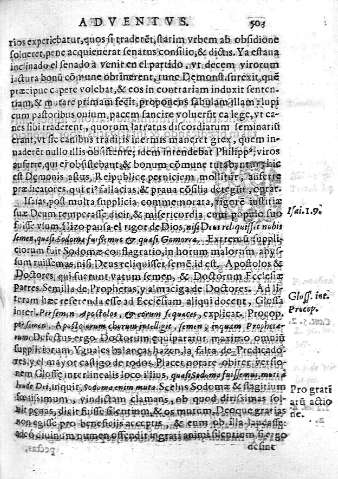 ADVENTVS. 503
rios experiebatur, quos si traderēt, statim vrbem ab obsidione
solueret, pene acquieuerat senatus consilio, & dictis. Ya estaua
inclinado el senado a venir en el partido, vt decem virorum
iactura bonū cōmune obtinerent, tunc Demost. surexit, quē
præcipue capere volebat, & eos in contrariam induxit senten
tiam, & mutare primam fecit, proponens fabulam illam, lupi
cum pastoribus ouium, pacem sancire voluerūt ea lege, vt ca-
nes sibi traderent, quorum latratus discordarum seminariū
erant, vt sic canibus traditis inermis maneret grex, quem in-
uaderēt nullo illis obsistente; idem intendebat Philippꝰ, viros
auferre, qui ei obsistebant, & bonum cōmune
est Demonis astus, Reipublicæ perniciem molitur, auferre
prædicatores, qui eiꝰ fallacias, & praua cōsilia
Isaias, post multa supplicia commemorata, rigorē iustitiæ
suæ Deum temperasse dicit, & misericordia cum populo suo
fuisse vsum. Hizo pausa el rigor de Dios, nisi Deus reliquisset nobis
semen, quasi Sodoma fuissemus & quasi Gomorra. Extremū suppli-
ciorum fuit Sodomæ conflagratio, in horum malorum
sum ruissemus, nisi Deus reliquisset semē. id est. Apostolos &
Doctores, qui fuerunt vatum semen, & Doctorum Ecclesiæ
Partes. Semilla de Prophetas, y almaciga de Doctores. Ad li
teram hæc referenda esse ad Ecclesiam aliqui docent, Gloss.
interl. Per semen Apostolos, & eorum sequaces, explicat. Procop.
per semen, Apostolorum chorum intelligit, semen, inquam Propheta-
rum. Defectus ergo Doctorum equiparatur maximo omniū
suppliciorum. Yguales balanças hazen la falta de Predicado-
res, y el mayor castigo de todos. Places notare obiter versio-
nem Glossæ inter lineales loco illius, quasi Sodoma fuissemus,
Scelus Sodomæ & flagitium
fœdissimum, vindictam clamans, ob quod dirissimas sol-
uit pœnas, dicit fuisse silentium, & os mutum. Deoque gratias
non egisse pro beneficijs acceptis, & eum ob illa laudasse:
adeò diuinum numen offendit ingrati animi silentium si ergo
desint
Isai. 1. 9.
Gloss. int.
Procop.
Pro grati
arū actio
ne.